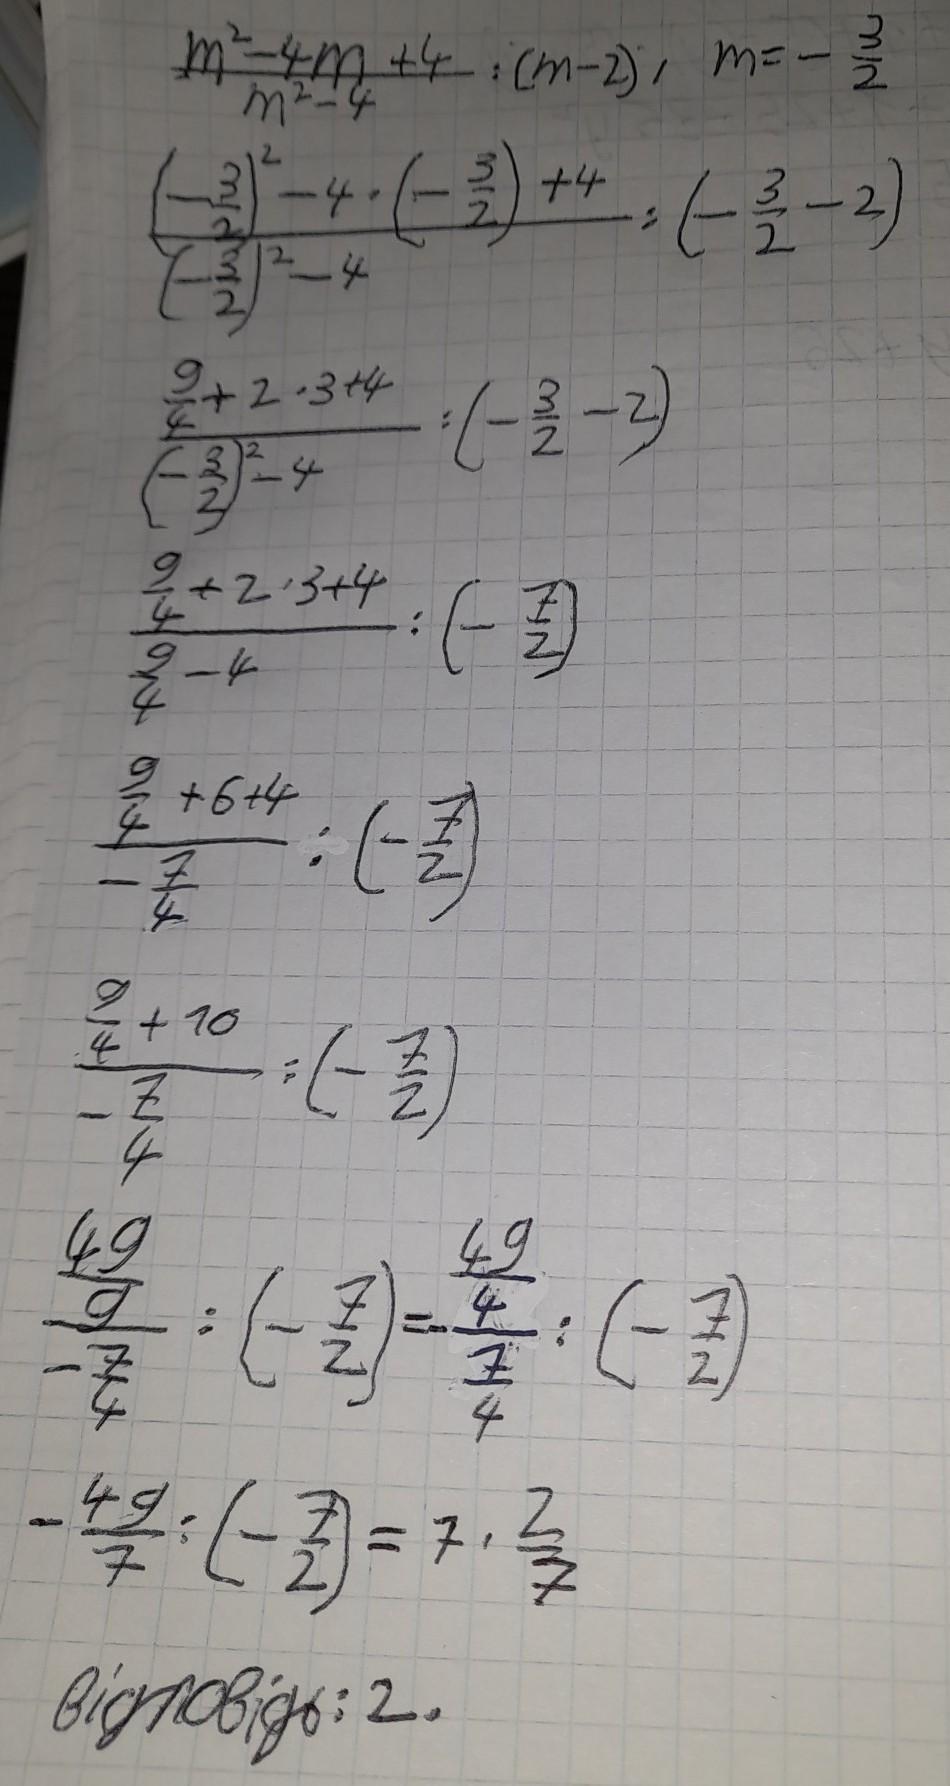 (m² - 4m + 4)/(m² - 4) : (m - 2), m = -3/2
((-3/2)² - 4 · (-3/2) + 4)/((-3/2)² - 4) : (-3/2 - 2)
(9/4 + 2 · 3 + 4)/((-3/2)² - 4) : (-3/2 - 2)
(9/4 + 2 · 3 + 4)/(9/4 - 4) : (-7/2)
(9/4 + 6 + 4)/(-7/4) : (-7/2)
(9/4 + 10)/(-7/4) : (-7/2)
(49/9)/(-7/4) : (-7/2) = -(49/4)/(7/4) : (-7/2)
-49/7 : (-7/2) = 7 · 2/7
відповідь: 2.